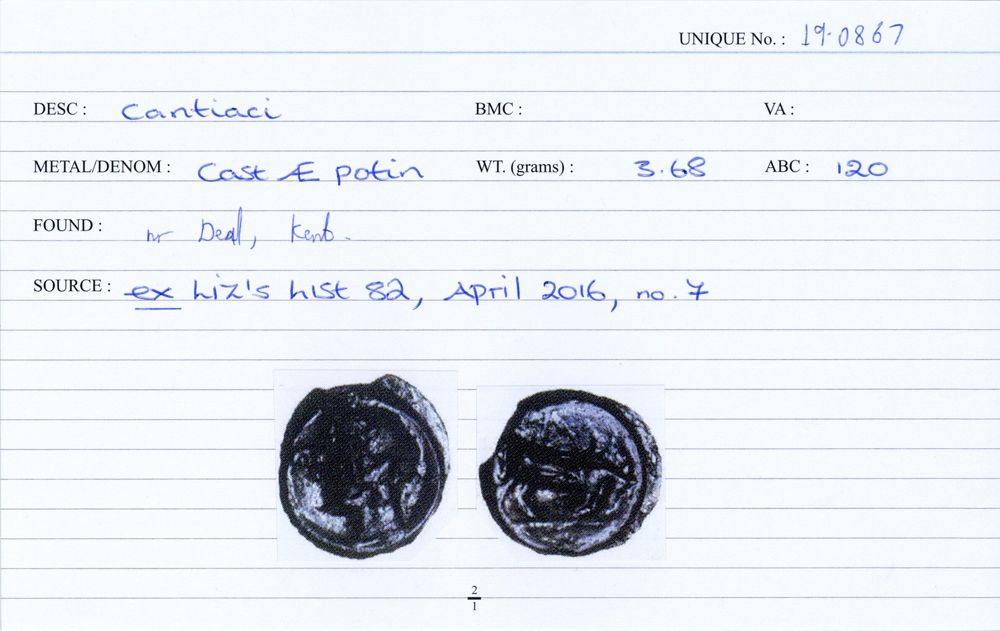 UNIQUE No. : 19.0867
DESC : Cantiaci BMC : VA :
METAL/DENOM : Cast Æ potin WT. (grams) : 3.68 ABC : 120
FOUND : nr Deal, Kent.
SOURCE : ex Liz's List 82, April 2016, no. 7
2
1